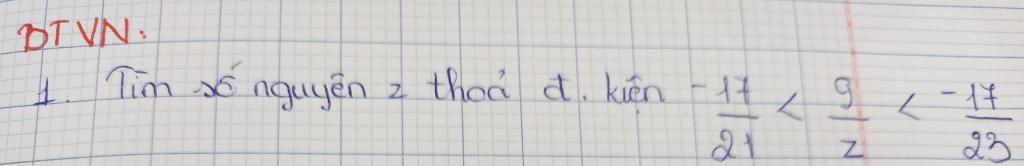 BTVN:
1. Tìm số nguyên z thoả đ. kiện -17/21 < 9/z < -17/23